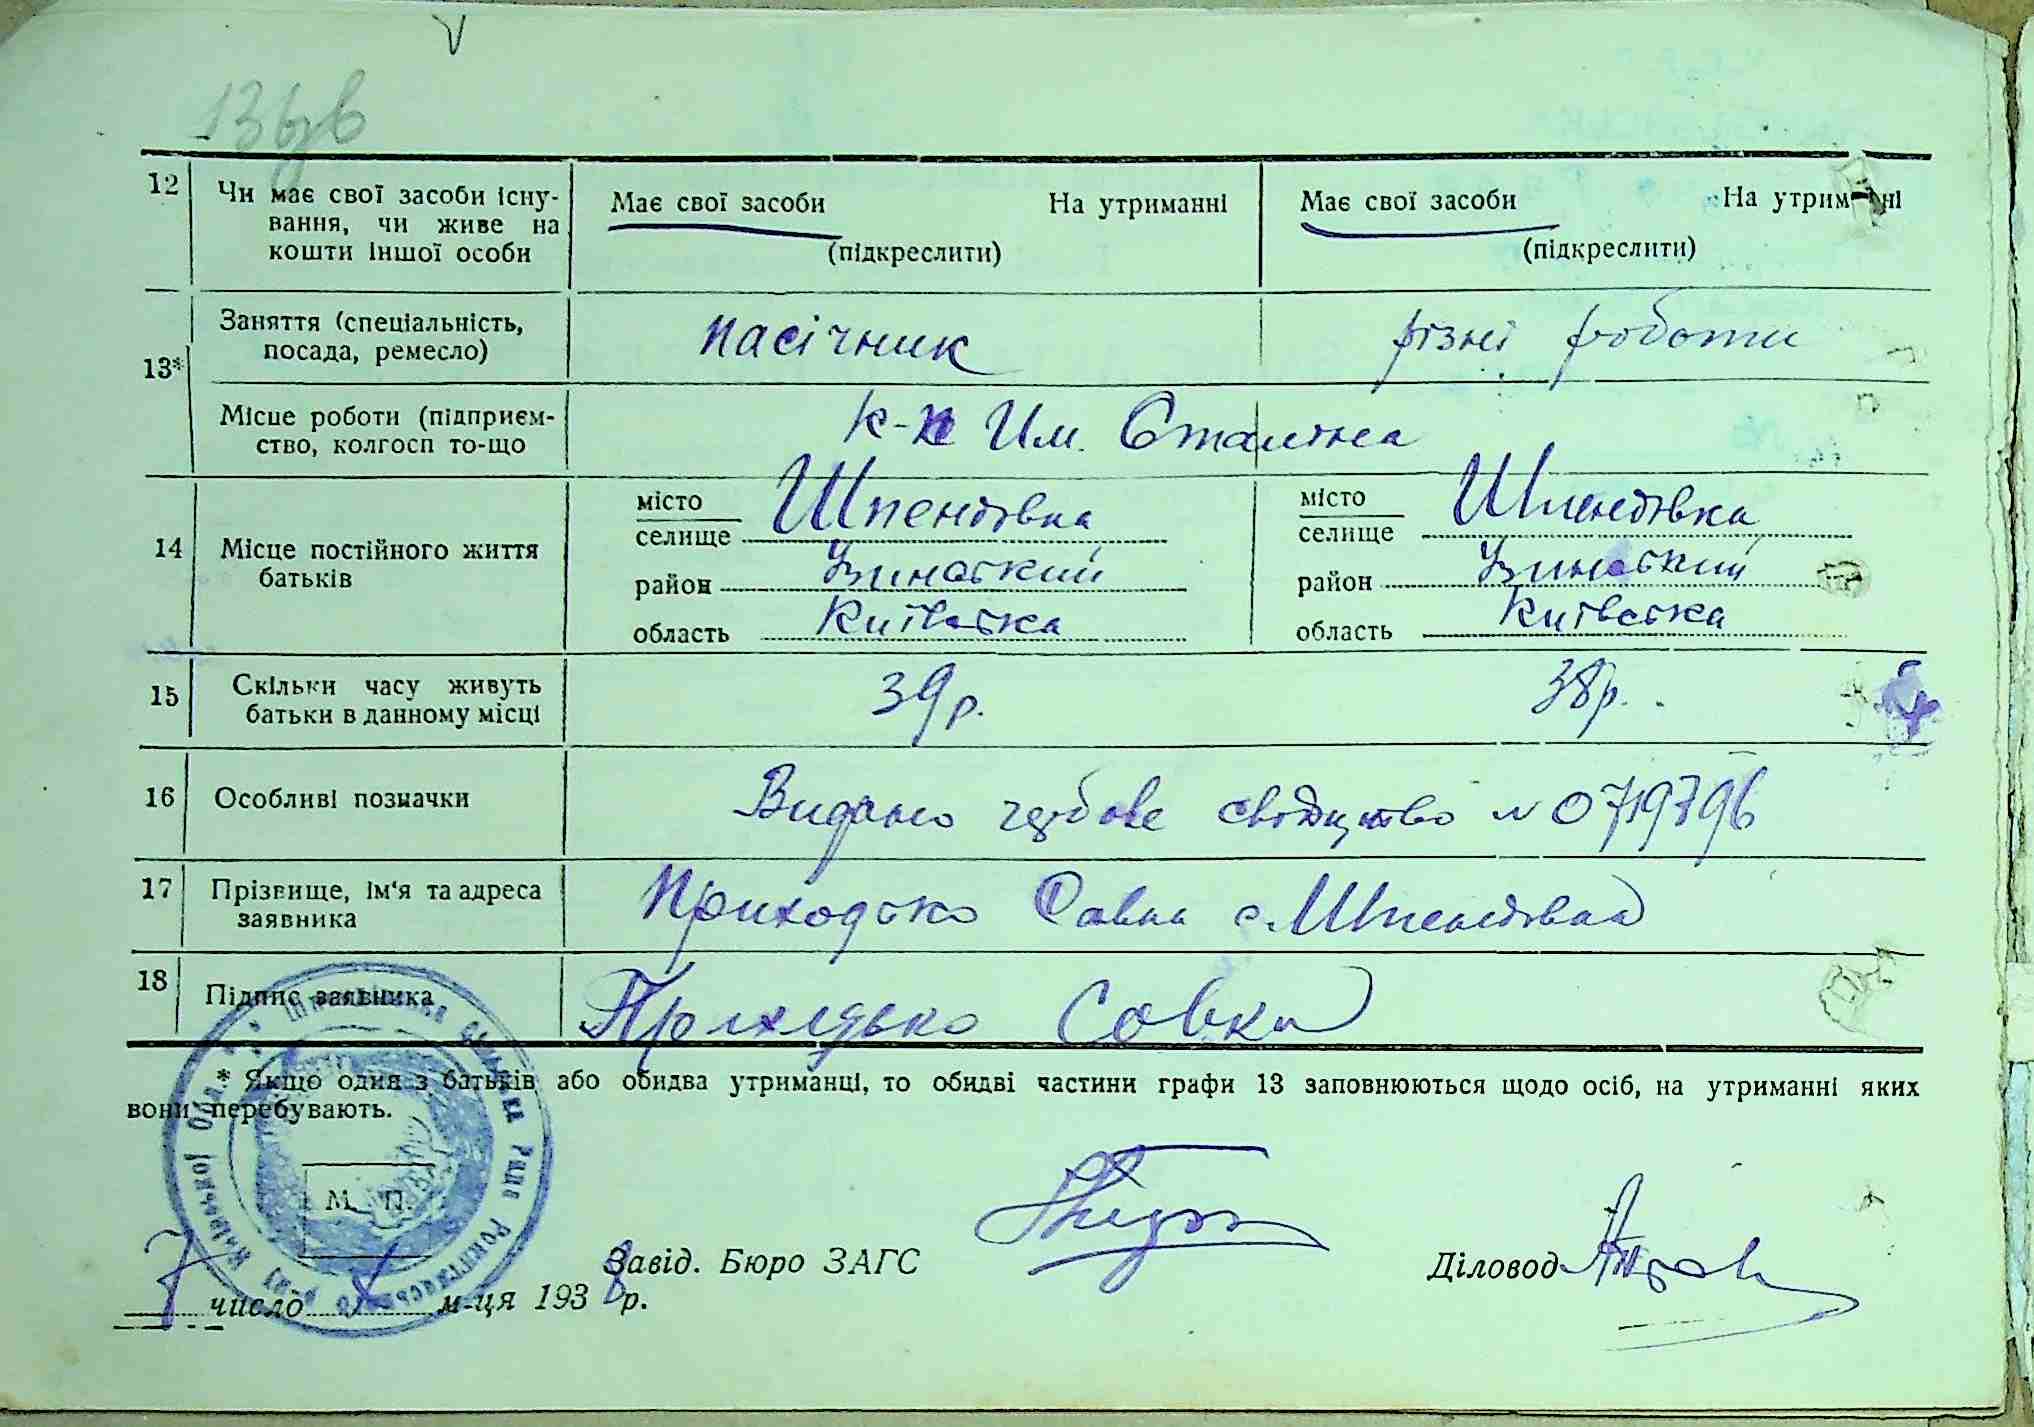 13 зв
12
Чи має свої засоби існу-
вання, чи живе на
кошти іншої особи
Має свої засоби На утриманні
(підкреслити)
Має свої засоби На утрим ні
(підкреслити)
13*
Заняття (спеціальність,
посада, ремесло)
пасічник
різні роботи
Місце роботи (підприєм-
ство, колгосп то-що
к-п Им. Сталіна
14
Місце постійного життя
батьків
місто
селище Шпендівка
район Узинський
область Київська
місто
селище Шпендівка
район Узинський
область Київська
15
Скільки часу живуть
батьки в данному місці
39 р.
38 р.
16
Особливі позначки
Видано свідоцтво N
17
Прізвище, ім'я та адреса
заявника
Приходько Савка с. Шпендівка
18
Підпис заявника
Приходько Совка
* Якщо один з батьків або обидва утриманці, то обидві частини графи 13 заповнюються щодо осіб, на утриманні яких
вони перебувають.
М. П.
Завід. Бюро ЗАГС
Діловод
7 число X м-ця 1938 р.